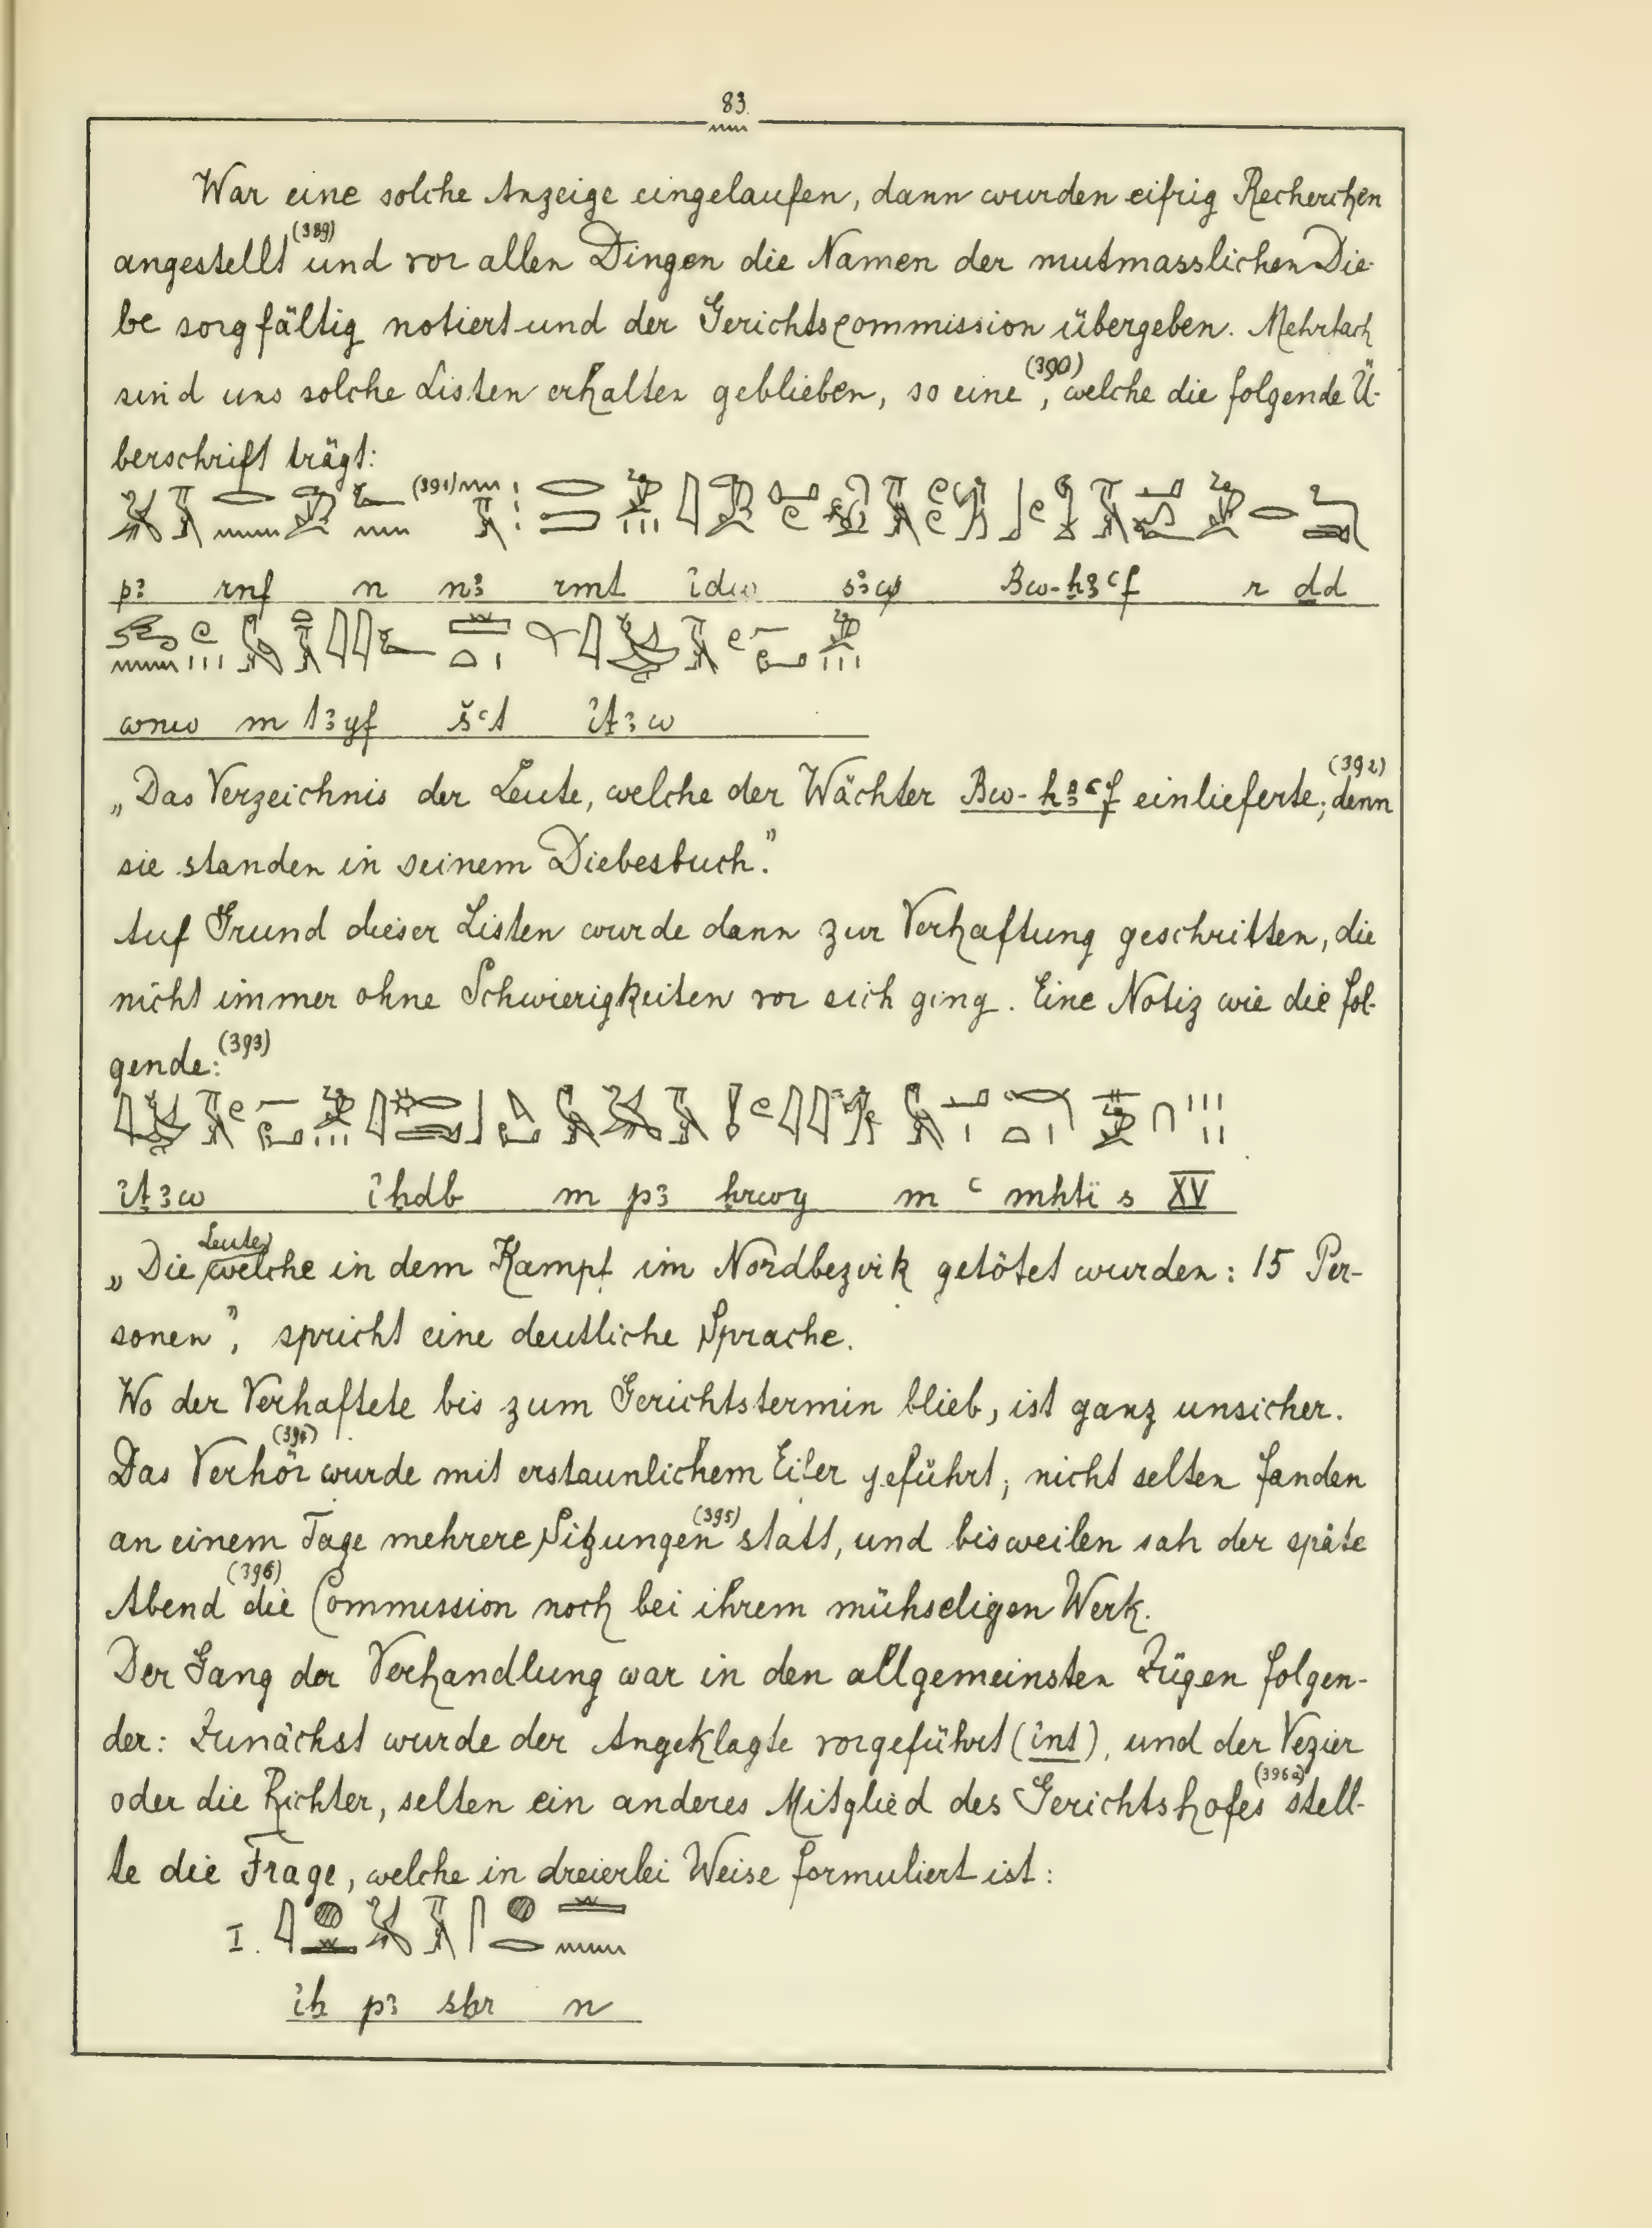 83.
War eine solche Anzeige eingelaufen, dann wurden eifrig Recherchen
angestellt (389) und vor allen Dingen die Namen der mutmasslichen Die-
be sorgfältig notiert und der Gerichtscommission übergeben. Mehrfach
sind uns solche Listen erhalten geblieben, so eine (390), welche die folgende Ü-
berschrift trägt:
(391)
pꜣ rnf n nꜣ rmt Bw-hꜣꜥf r dd
wnw m tꜣyf šꜥt iṯꜣw
„Das Verzeichnis der Leute, welche der Wächter Bw-hꜣꜥf einlieferte; (392) denn
sie standen in seinem Diebesbuch."
Auf Grund dieser Listen wurde dann zur Verhaftung geschritten, die
nicht immer ohne Schwierigkeiten vor sich ging. Eine Notiz wie die fol-
gende: (393)
iṯꜣw ihdb m pꜣ hrwy m ꜥ mhti s XV
„Die Leute, welche in dem Kampf im Nordbezirk getötet wurden: 15 Per-
sonen", spricht eine deutliche Sprache.
Wo der Verhaftete bis zum Gerichtstermin blieb, ist ganz unsicher.
Das Verhör (394) wurde mit erstaunlichem Eifer geführt; nicht selten fanden
an einem Tage mehrere Sitzungen (395) statt, und bisweilen sah der späte
Abend (396) die Commission noch bei ihrem mühseligen Werk.
Der Gang der Verhandlung war in den allgemeinsten Zügen folgen-
der: Zunächst wurde der Angeklagte vorgeführt (int), und der Vezier
oder die Richter, selten ein anderes Mitglied des Gerichtshofes (396a) stell-
te die Frage, welche in dreierlei Weise formuliert ist:
I.
iḫ pꜣ sḫr n